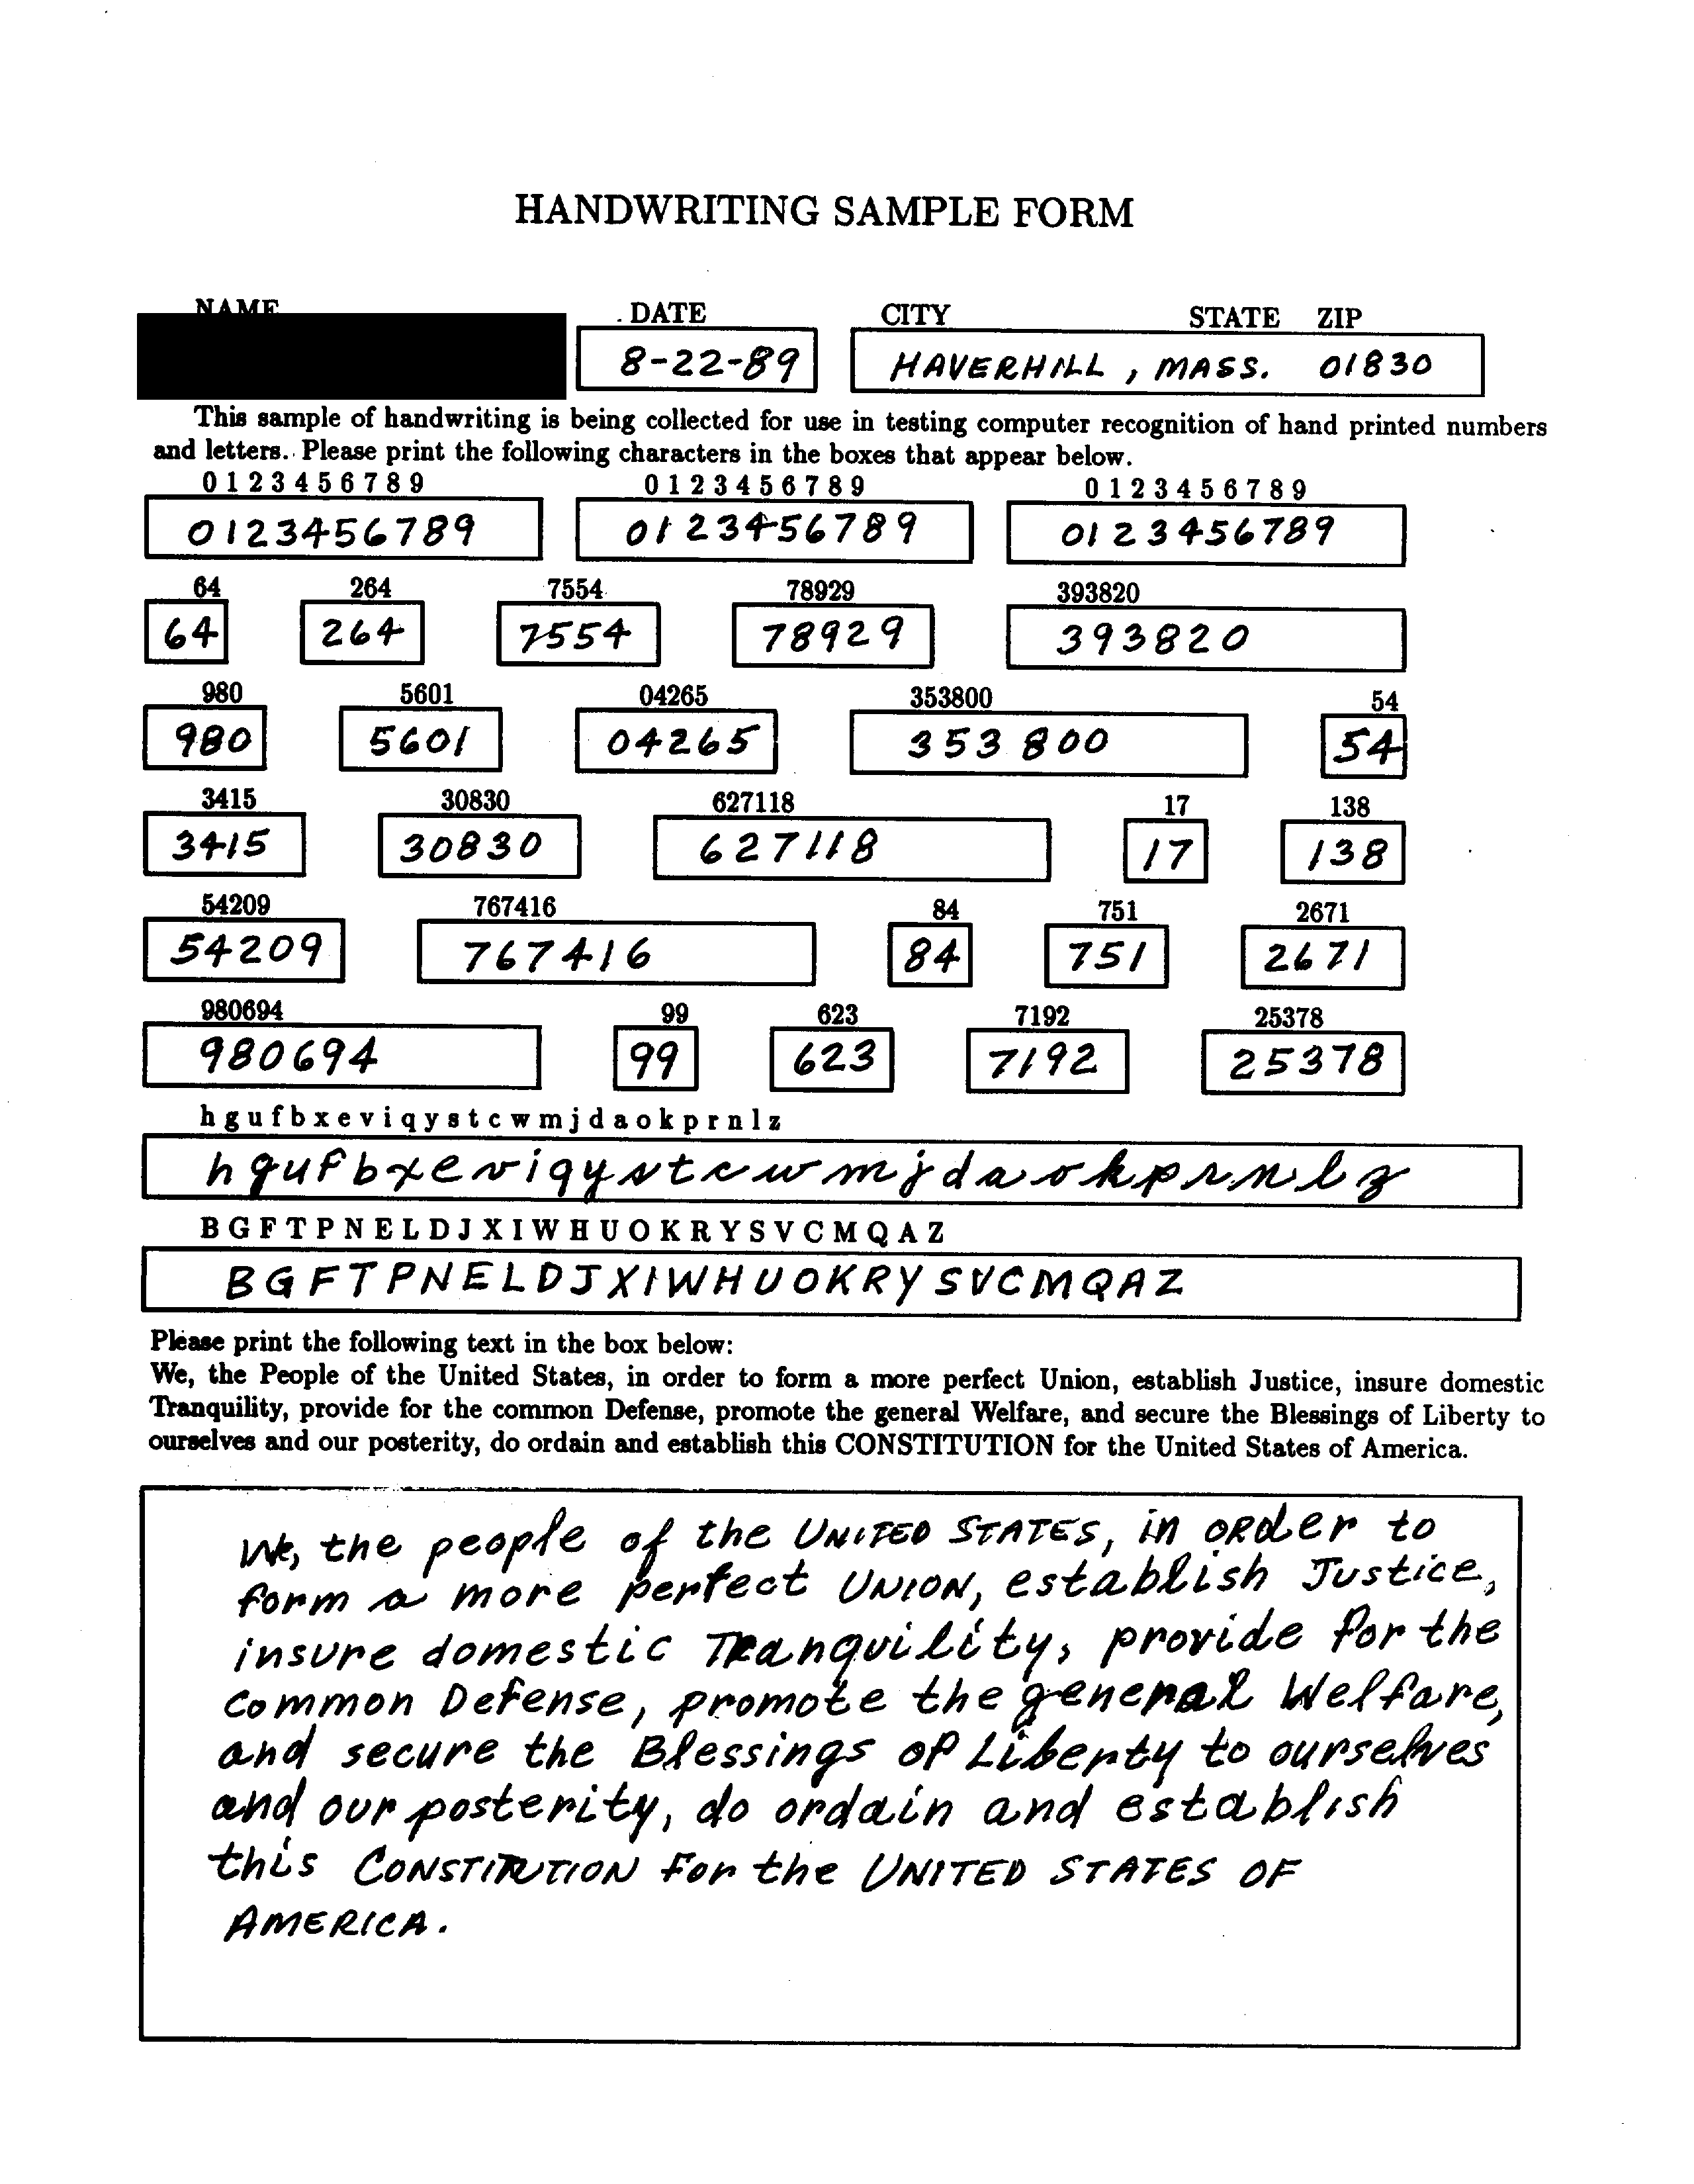 HANDWRITING SAMPLE FORM
NAME DATE CITY STATE ZIP
8-22-89 HAVERHILL, MASS. 01830
This sample of handwriting is being collected for use in testing computer recognition of hand printed numbers
and letters. Please print the following characters in the boxes that appear below.
0 1 2 3 4 5 6 7 8 9 0 1 2 3 4 5 6 7 8 9 0 1 2 3 4 5 6 7 8 9
0123456789 0123456789 0123456789
64 264 7554 78929 393820
64 264 7554 78929 393820
980 5601 04265 353800 54
980 5601 04265 353800 54
3415 30830 627118 17 138
3415 30830 627118 17 138
54209 767416 84 751 2671
54209 767416 84 751 2671
980694 99 623 7192 25378
980694 99 623 7192 25378
h g u f b x e v i q y s t c w m j d a o k p r n l z
h g u f b x e v i q y s t c w m j d a o k p r n l z
B G F T P N E L D J X I W H U O K R Y S V C M Q A Z
B G F T P N E L D J X I W H U O K R Y S V C M Q A Z
Please print the following text in the box below:
We, the People of the United States, in order to form a more perfect Union, establish Justice, insure domestic
Tranquility, provide for the common Defense, promote the general Welfare, and secure the Blessings of Liberty to
ourselves and our posterity, do ordain and establish this CONSTITUTION for the United States of America.
We, the people of the UNITED STATES, in ORder to
form a more perfect UNION, establish Justice,
insure domestic TRanquility, provide for the
common Defense, promote the general Welfare,
and secure the Blessings of Liberty to ourselves
and our posterity, do ordain and establish
this CONSTITUTION For the UNITED STATES OF
AMERICA.